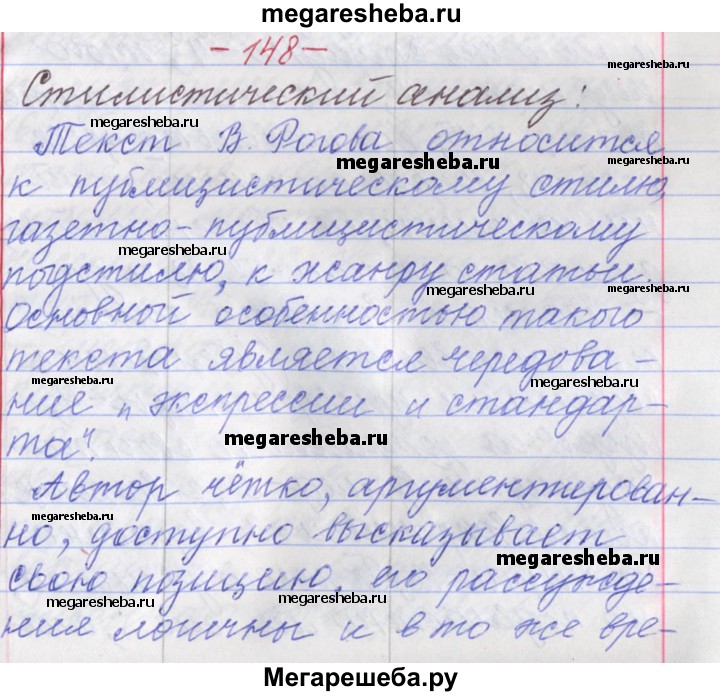 megaresheba.ru
- 148 -
megaresheba.ru
Стилистический анализ:
megaresheba.ru megaresheba.ru
Текст В. Рогова относится
megaresheba.ru megaresheba.ru
к публицистическому стилю,
газетно-публицистическому
megaresheba.ru
подстилю, к жанру статьи.
megaresheba.ru megaresheba.ru
Основной особенностью такого
текста является чередова-
megaresheba.ru megaresheba.ru
ние „экспрессии и стандар-
та".
megaresheba.ru
Автор чётко, аргументирован-
megaresheba.ru
но, доступно высказывает
megaresheba.ru
свою позицию, его рассужде-
megaresheba.ru megaresheba.ru megaresheba.ru
ния логичны и в то же вре-
Мегарешеба.ру